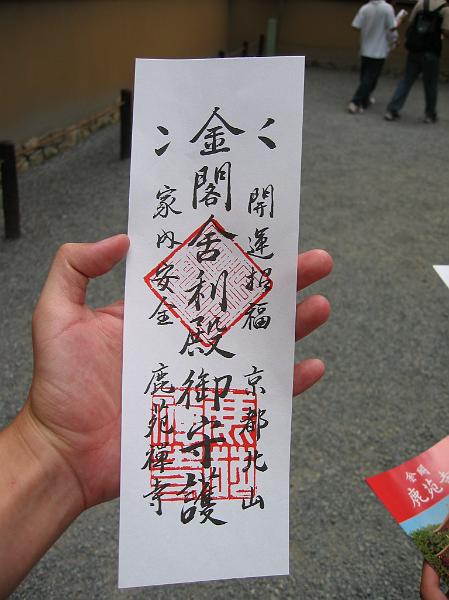 開運招福 京都北山
金閣舎利殿御守護
家内安全 鹿苑禅寺
金閣
鹿苑寺